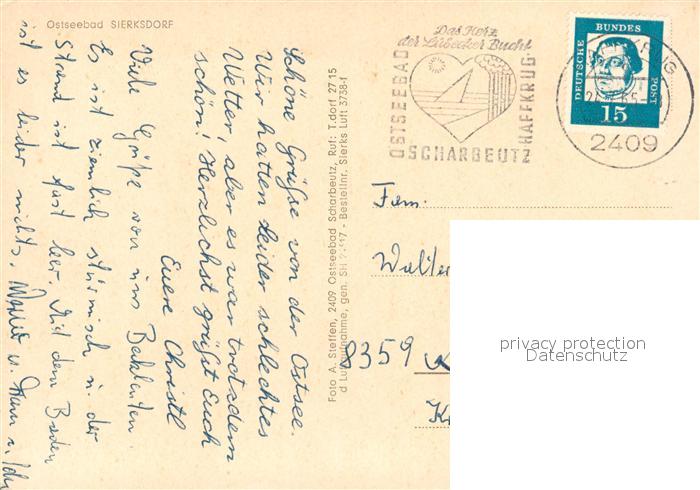 Ostseebad SIERKSDORF
Schöne Grüße von der Ostsee.
Wir hatten leider schlechtes
Wetter, aber es war trotzdem
schön! Herzlichst grüßt Euch
Euere Christl
Viele Grüße von uns
Es ist ziemlich stürmisch u. der
Strand ist fast leer. Mit dem Baden
ist es leider nichts.
Foto A. Steffen, 2409 Ostseebad Scharbeutz, Ruf: T.dorf 2715
Luftaufnahme, gen. SH - Bestellnr. Sierks Luft 3738-f
Das Herz
der Lübecker Bucht
OSTSEEBAD
HAFFKRUG
SCHARBEUTZ
DEUTSCHE
BUNDES
POST
15
2409
Fam.
Walter
8359
privacy protection
Datenschutz